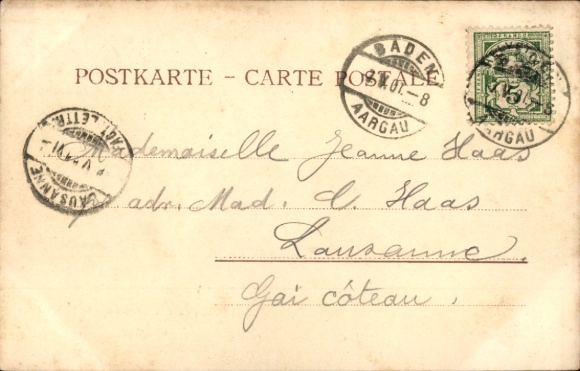 POSTKARTE – CARTE POSTALE
BADEN
AARGAU
FRANCO
5
AARGAU
LAUSANNE
LETTR.
Mademoiselle Jeanne Haas
adr. Mad. C. Haas
Lausanne.
Gai côteau.